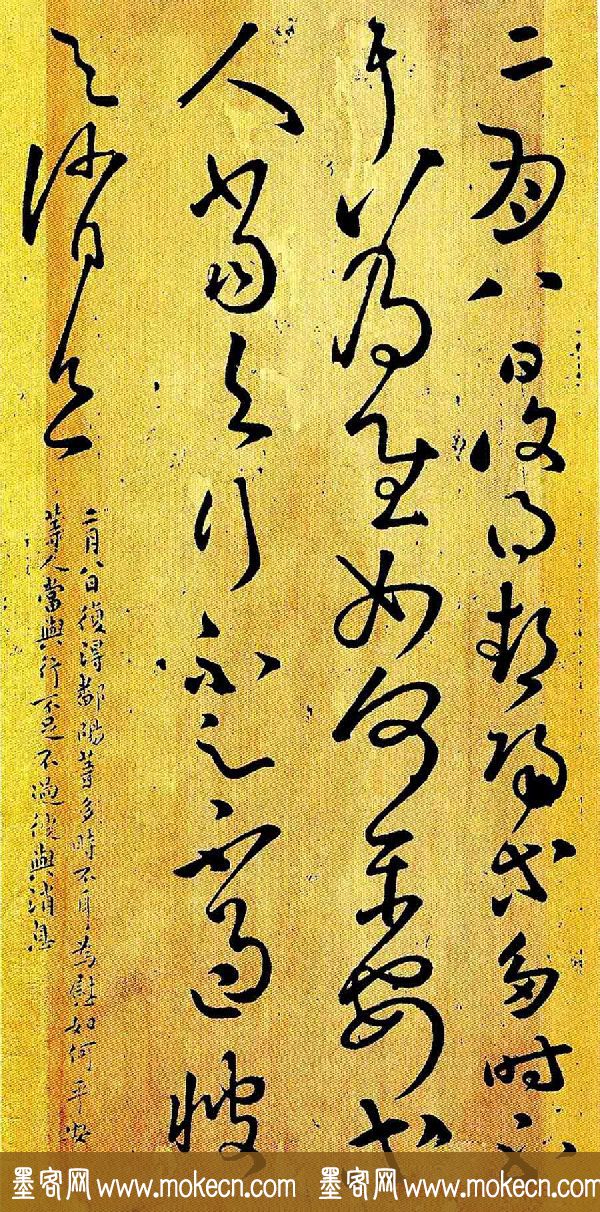 二月八日復得鄱陽等多時不
耳為慰如何平安等
人當與行不足不過後
與消息
二月八日復得鄱陽等多時不耳為慰如何平安
等人當與行不足不過後與消息
墨客网 www.mokecn.com 墨客网 www.mokecn.com